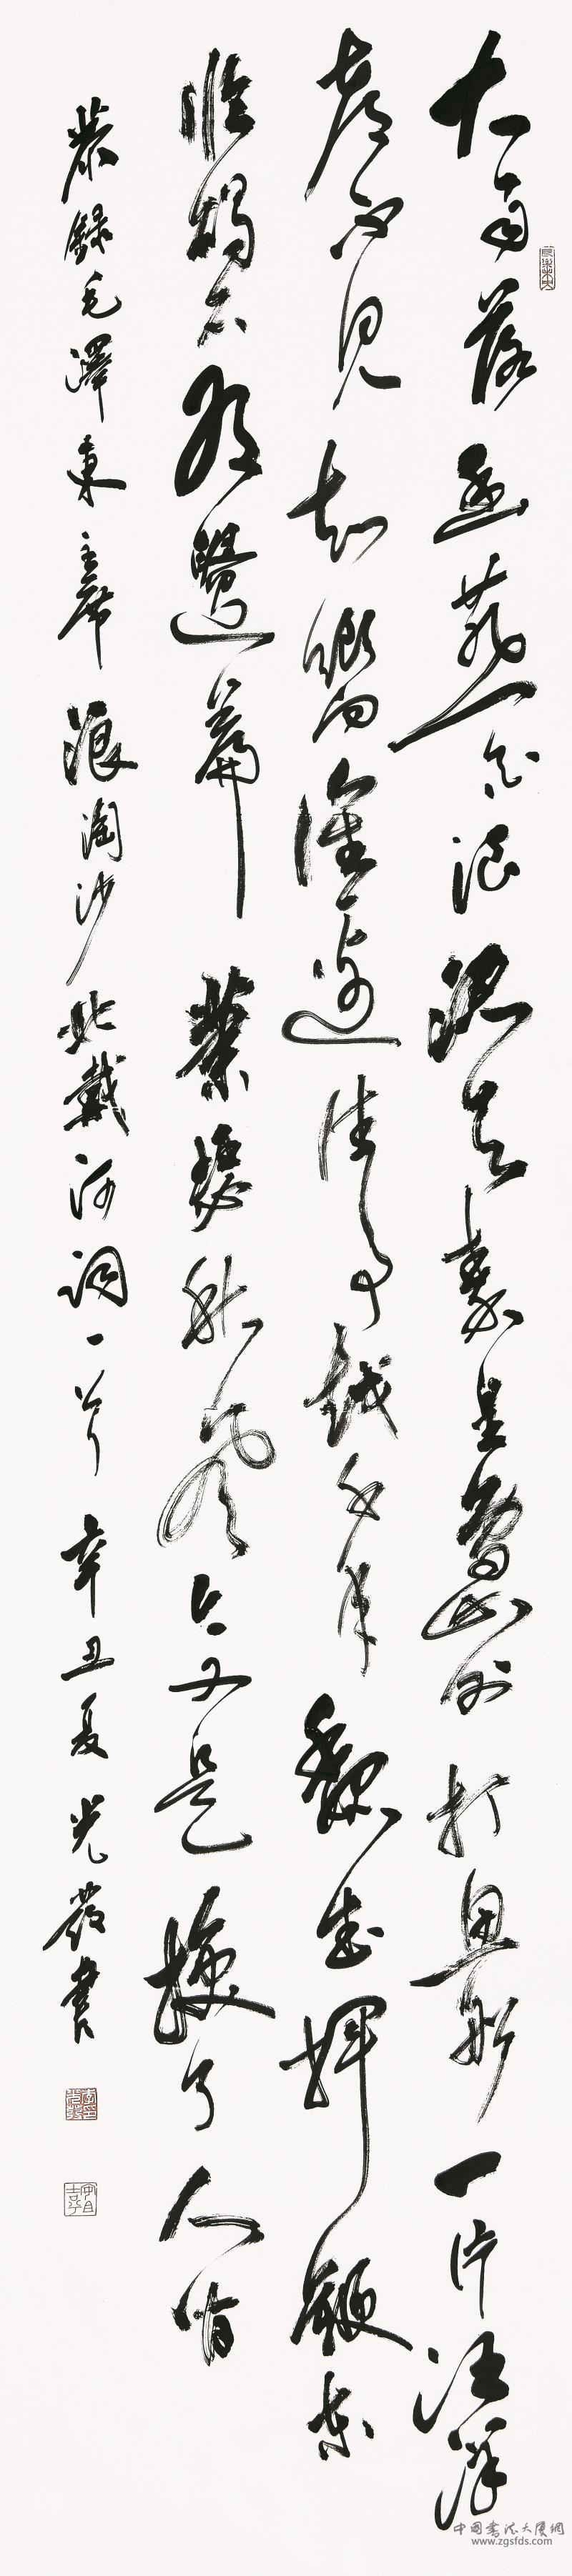 大雨落幽燕白浪滔天秦皇島外打魚船一片汪洋
都不見知嚮誰邊往事越千年魏武揮鞭東
臨碣石有遺篇蕭瑟秋風今又是換了人間
恭錄毛澤東主席浪淘沙北戴河詞一首辛丑夏光發書
中國書法大廈網
www.zgsfds.com